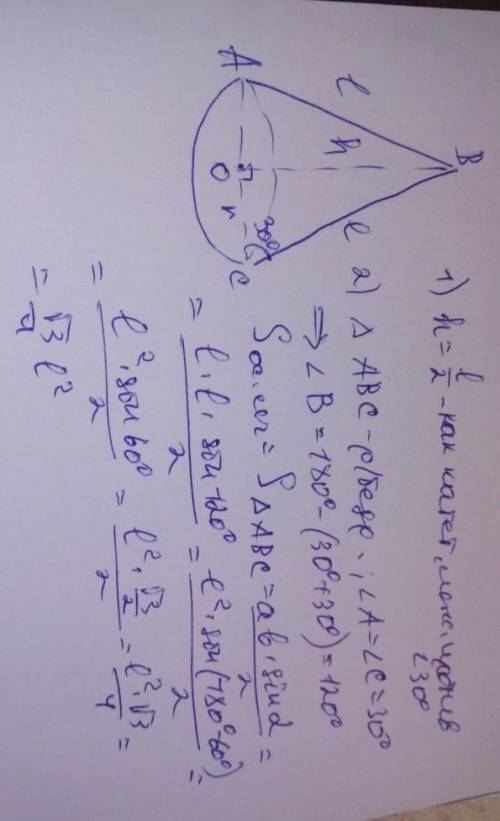 B
l
h
l
A
O
r
30°
C
1) h = l/2 - как катет, леж. против ∠30°
2) Δ ABC - р/бедр.; ∠A = ∠C = 30°
⇒ ∠B = 180° - (30° + 30°) = 120°
S ос. сеч = S Δ ABC = ab · sin α / 2 =
= l · l · sin 120° / 2 = l² · sin (180° - 60°) / 2 =
= l² · sin 60° / 2 = l² · √3/2 / 2 = l² · √3 / 4 =
= √3/4 l²